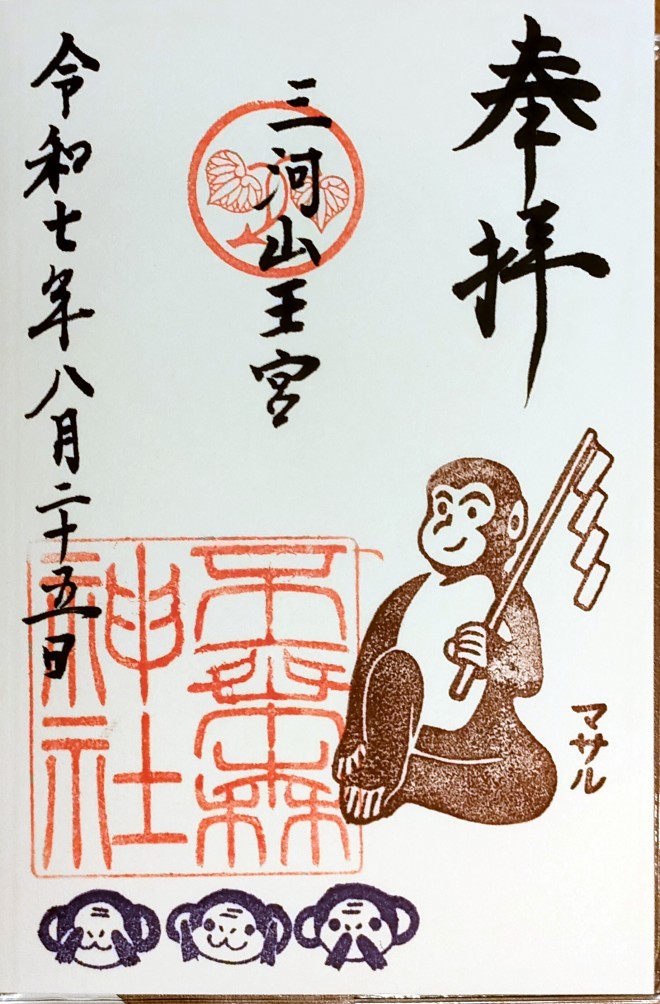 奉拝
三河山王宮
不乗森
神社
マサル
令和七年八月二十五日